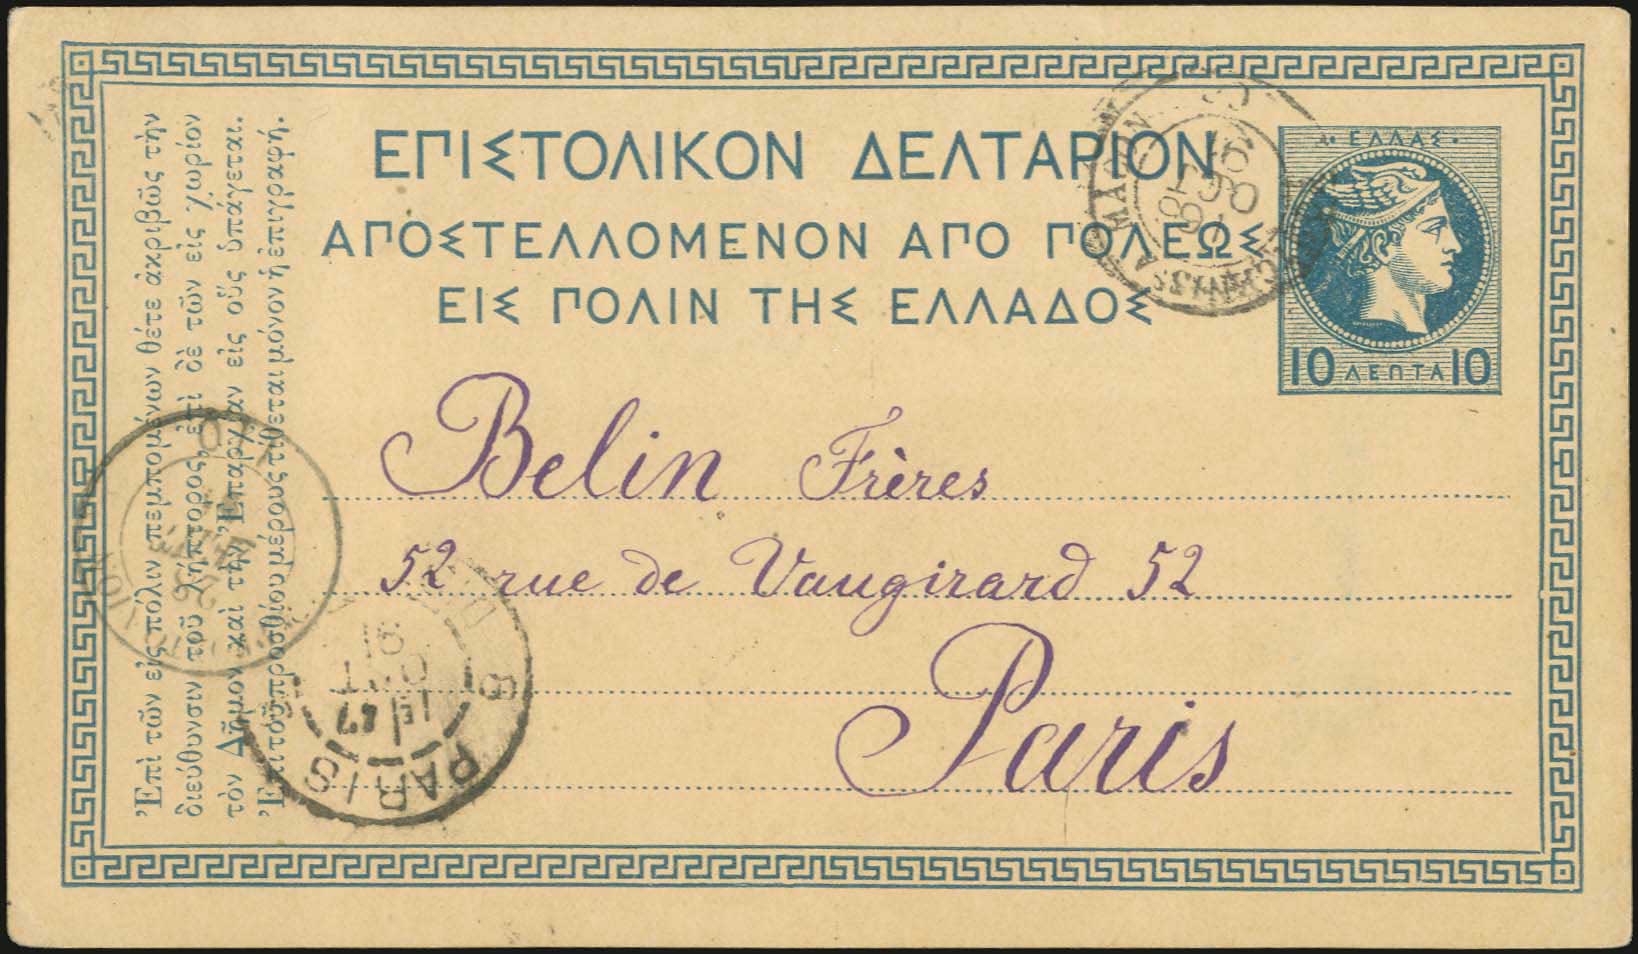 ΕΠΙΣΤΟΛΙΚΟΝ ΔΕΛΤΑΡΙΟΝ
ΑΠΟΣΤΕΛΛΟΜΕΝΟΝ ΑΠΟ ΠΟΛΕΩΣ
ΕΙΣ ΠΟΛΙΝ ΤΗΣ ΕΛΛΑΔΟΣ
ΕΛΛΑΣ
10 ΛΕΠΤΑ 10
Ἐπὶ τῶν εἰς πόλιν πεμπομένων θέτε ἀκριβῶς τὴν
διεύθυνσιν τοῦ λήπτορος, ἐπὶ δὲ τῶν εἰς χωρίον
τὸν Δῆμον καὶ τὴν Ἐπαρχίαν εἰς οὓς ὑπάγεται.
Ἐπὶ τοῦ προσθίου μέρους τίθεται μόνον ἡ ἐπιγραφή.
Belin Frères
52 rue de Vaugirard 52
Paris
PARIS